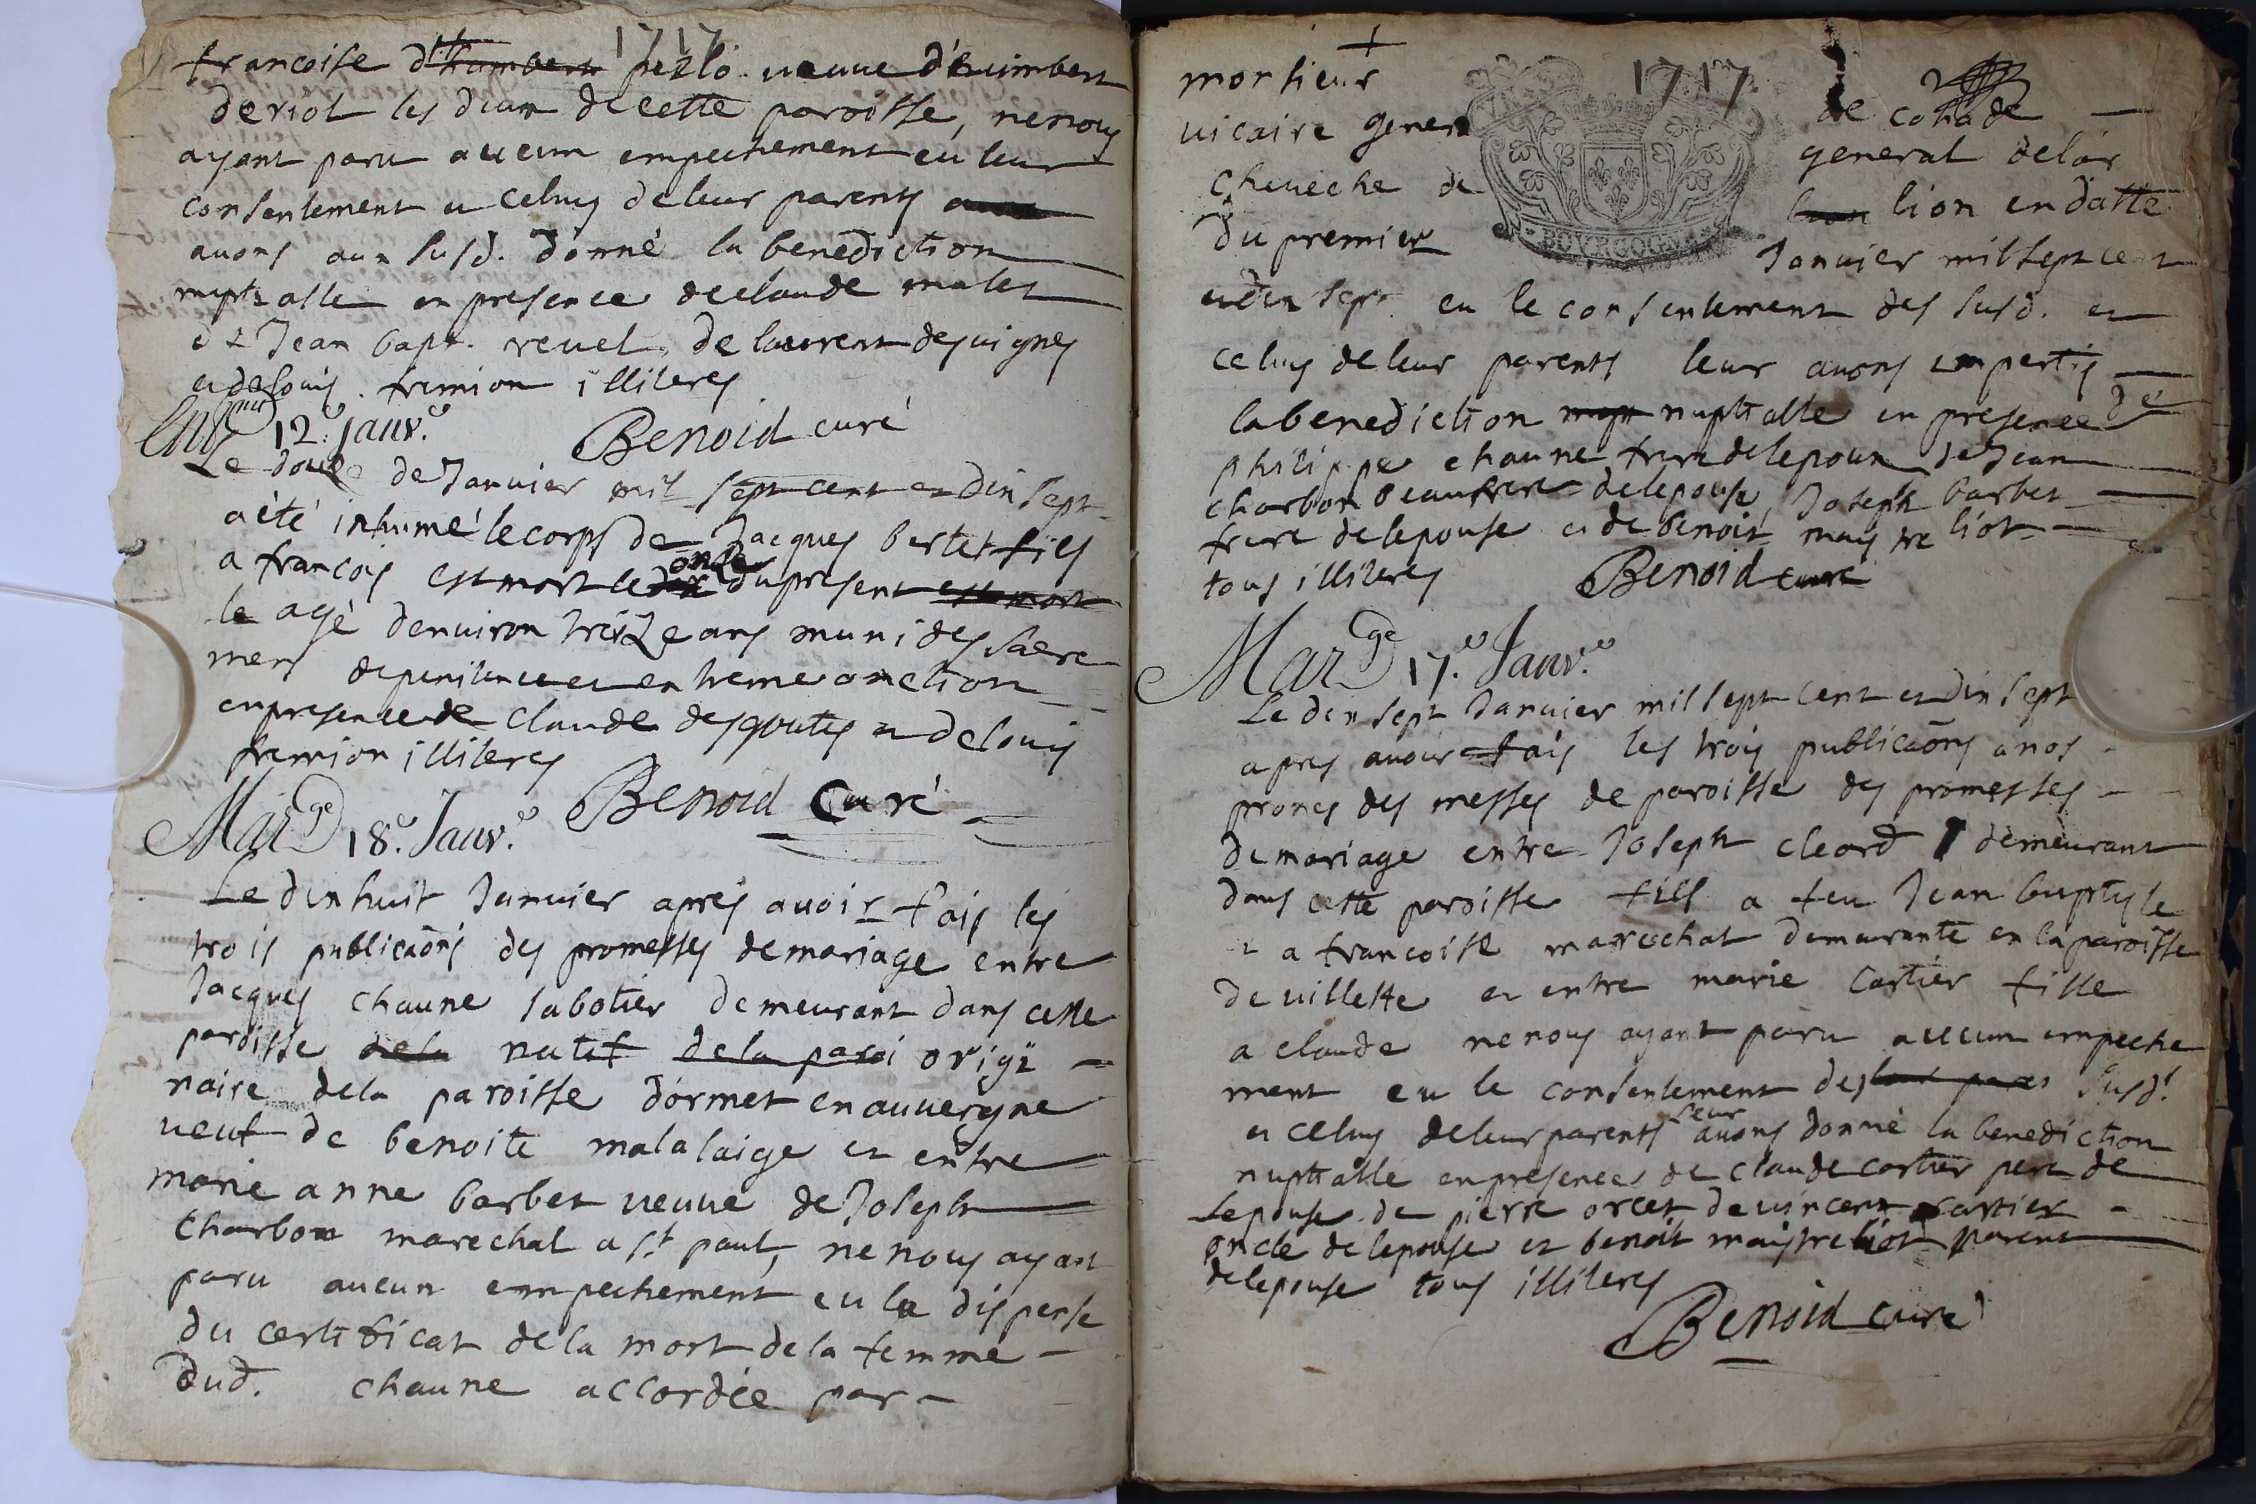 1717
francoise d'humbert pezlo veuve d'humbert
deriol les deux de cette paroisse, ne nous
ayant paru aucun empechement eu leur
consentement et celuy de leur parents
avons aux susd. donné la benediction
nuptialle en presence de claude malet
et Jean bapt. revel, de laurent desvignes
et de louis fremion illiteres
Benoid curé
12.e janv.e
Le douze de Janvier mil sept cent et dix sept
a été inhumé le corps de Jacques bertet fils
a francois est mort le onze du present est mort
le agé d'environ treize ans muni des sacre
mens de penitence et extreme onction
en presence de claude desgoutes et de louis
fremion illiteres
Benoid Curé
Mar.ge 18.e Janv.e
Le dix huit Janvier aprés avoir fais les
trois publicaõns des promesses de mariage entre
Jacques chaune sabotier demeurant dans cette
paroisse de la natif de la paroi origi-
naire de la paroisse d'ormet en auvergne
veuf de benoite malalaige et entre
marie anne barbet veuve de Joseph
Charbon marechal a st. paul, ne nous ayant
paru aucun empechement eu la dispense
du certificat de la mort de la femme
dud. chaune accordée par
1717
monsieur de cohade
vicaire gener general de lar
cheveche de lion en datte
BOURGOGNE
du premier Janvier mil sept cent
et dix sept eu le consentement des susd. et
celuy de leur parents leur avons impertis
la benediction nupt nuptialle en presence de
philippe chaune frere de lepoux de Jean
charbon beaufrere de lepouse, Joseph barbet
frere de lepouse et de benoit maistre liot
tous illiteres Benoid curé
Mar.ge 17.e Janv.e
Le dix sept Janvier mil sept cent et dix sept
apres avoir fais les trois publicaõns a nos
prones des messes de paroisse des promesses
de mariage entre Joseph cleard demeurant
dans cette paroisse fils a feu Jean baptiste
et a francoise marechat demeurante en la paroisse
de villette et entre marie cartier fille
a claude ne nous ayant paru aucun empeche
ment eu le consentement des leur pares susd.
et celuy de leur parents leur avons donné la benediction
nuptialle en presence de claude cartier pere de
lepouse de pierre orcet de vincent cartier
oncle de lepouse et benoit maistre liot parent
de lepouse tous illiteres
Benoid curé